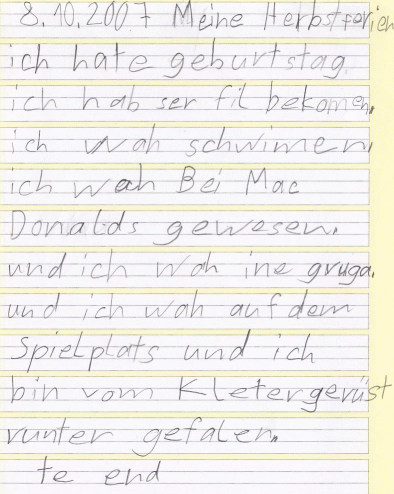 8.10.2007 Meine Herbstferien
ich hate geburtstag
ich hab ser fil bekomen.
ich wah schwimen,
ich wah Bei Mac
Donalds gewesen.
und ich wah ine gruga.
und ich wah auf dem
Spielplats und ich
bin vom Kletergerüst
runter gefalen.
te end